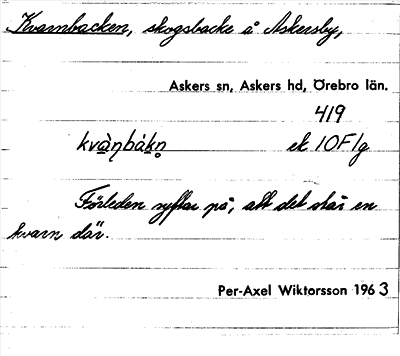 Kvarnbacken, skogsbacke å Askersby,
Askers sn, Askers hd, Örebro län.
419
kvàṇbákn̥ ek 10F1g
Förleden syftar på, att det står en
kvarn där.
Per-Axel Wiktorsson 1963